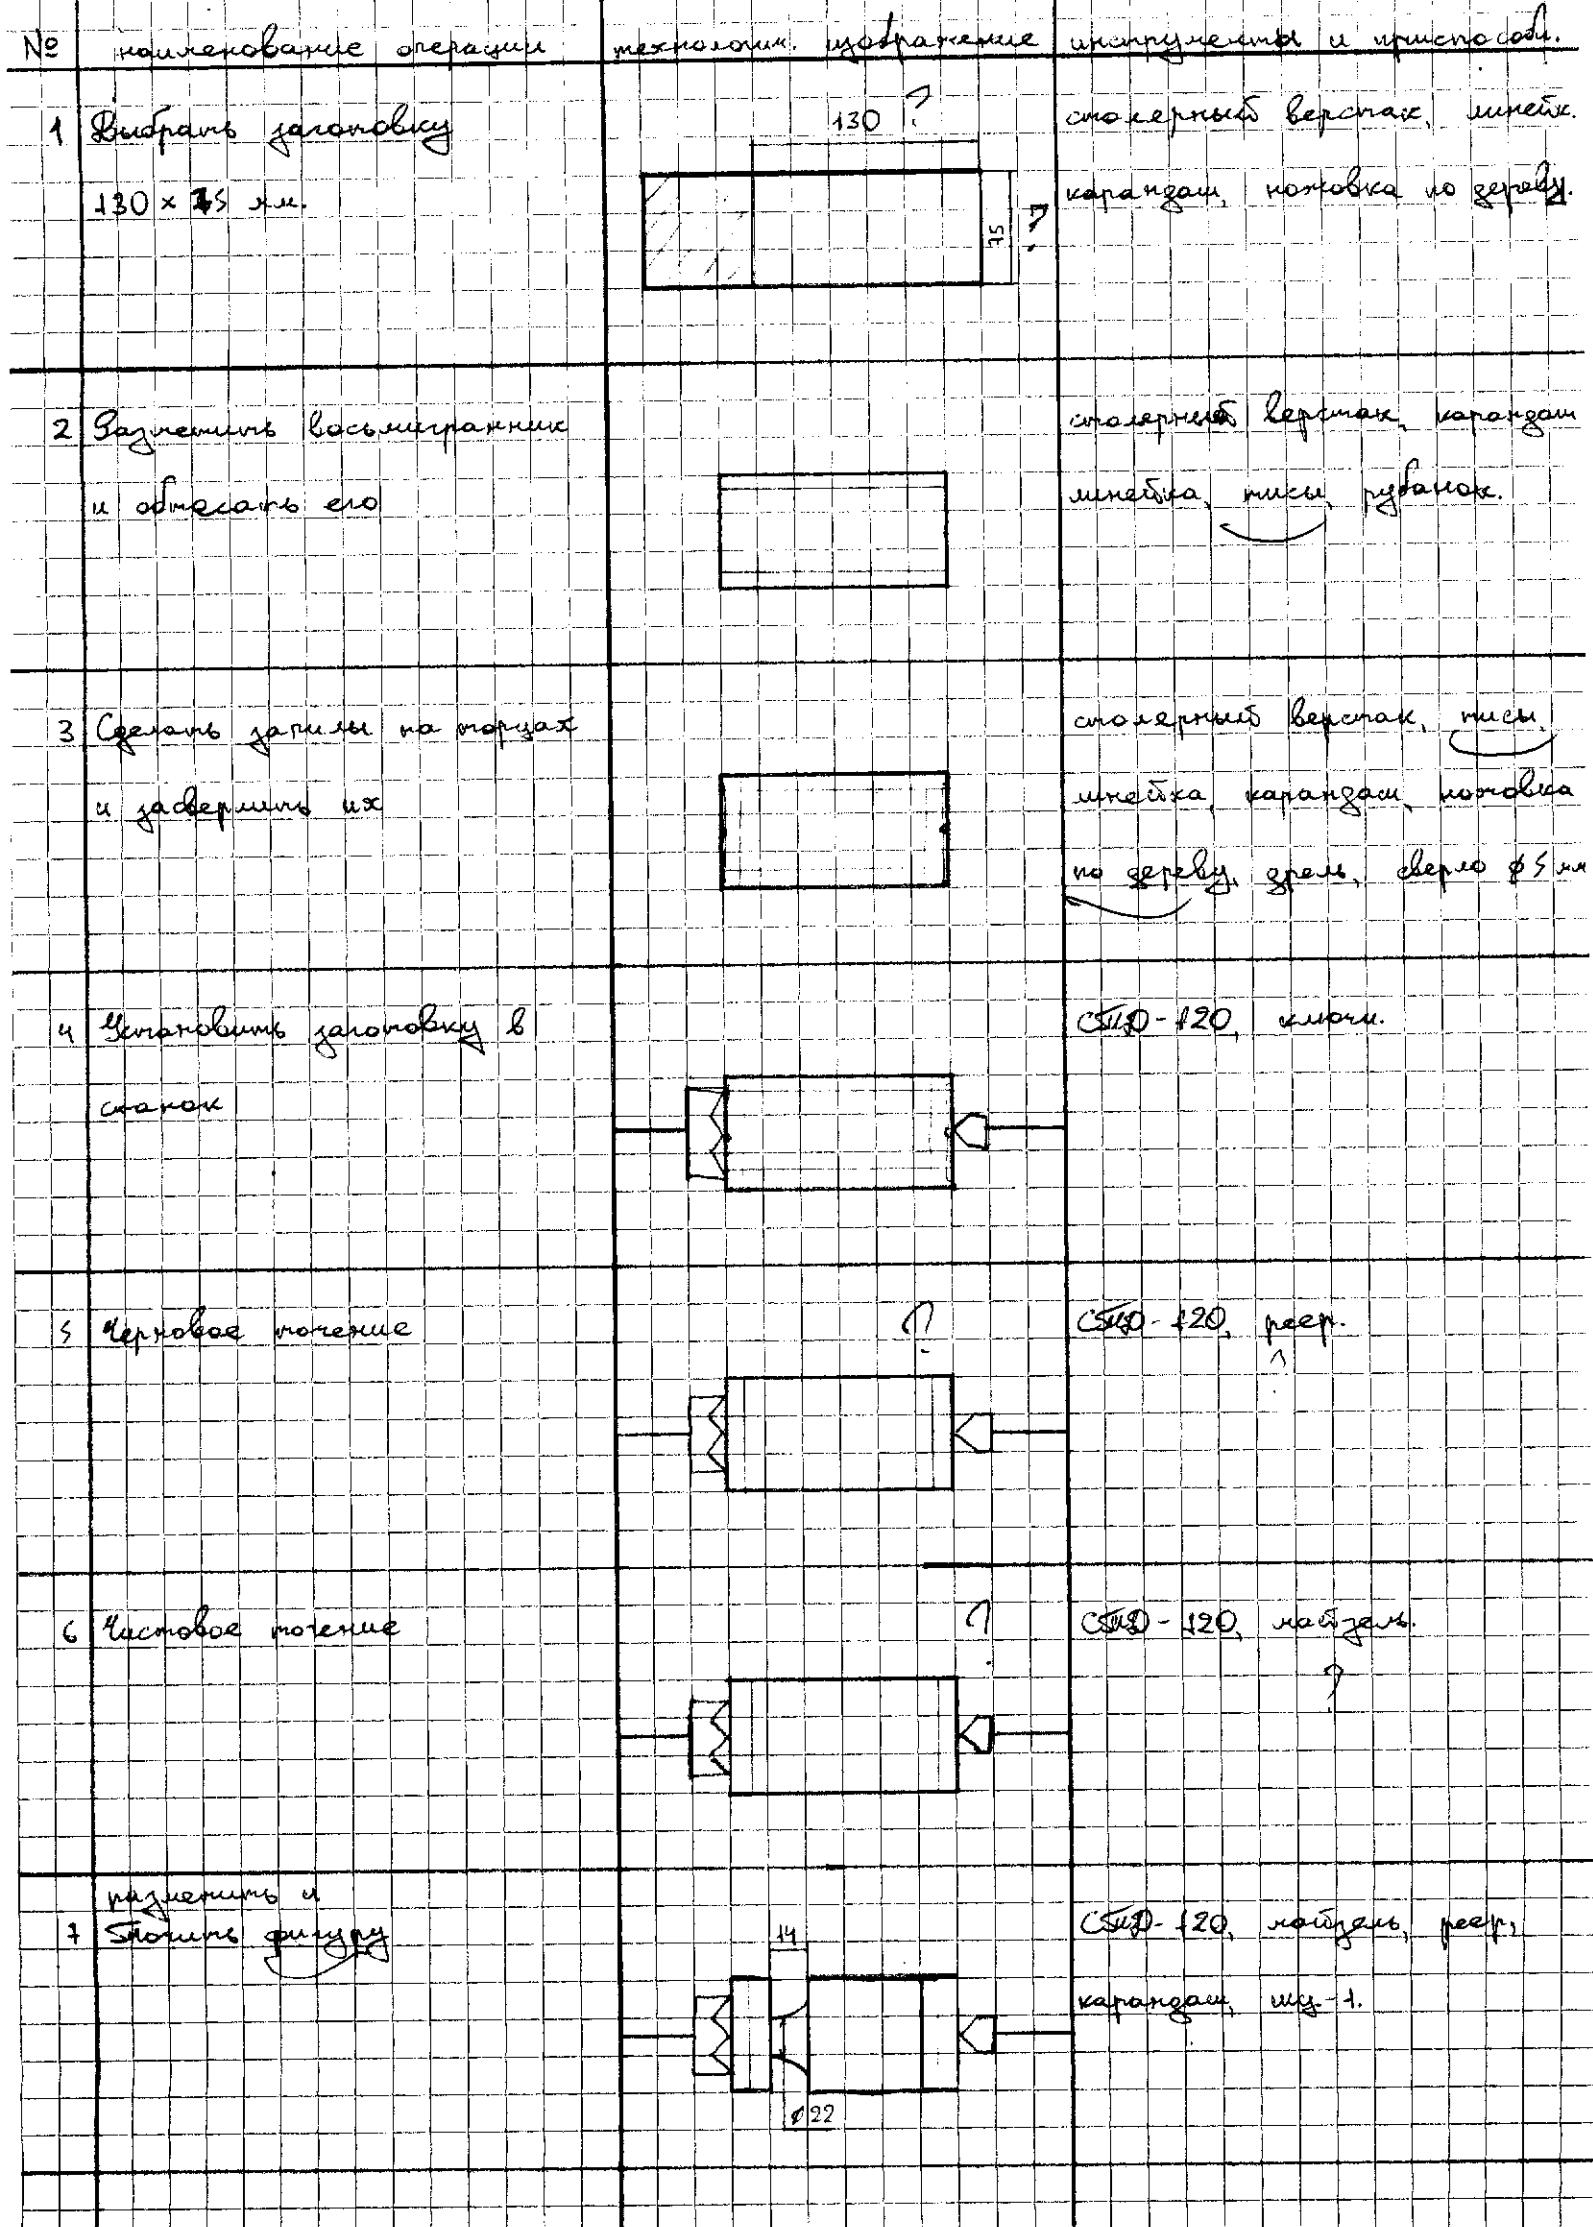 № наименование операции технологич. изображение инструменты и приспособл.
1 Выбрать заготовку
130 x 75 мм.
130 ?
75 ?
столерный верстак, линейк.
карандаш, ножовка по дереву.
2 Разметить восьмигранник
и обтесать его
столерный верстак, карандаш
линейка, тисы, рубанок.
3 Сделать запилы на торцах
и засверлить их
столерный верстак, тисы,
линейка, карандаш, ножовка
по дереву, дрель, сверло ø5 мм
4 Установить заготовку в
станок
СТД-120, ключи.
5 Черновое точение
?
СТД-120, реер.
6 Чистовое точение
?
СТД-120, майзель.
?
7 разметить и
точить фигуру
14
ø22
СТД-120, майзель, реер,
карандаш, шц-1.